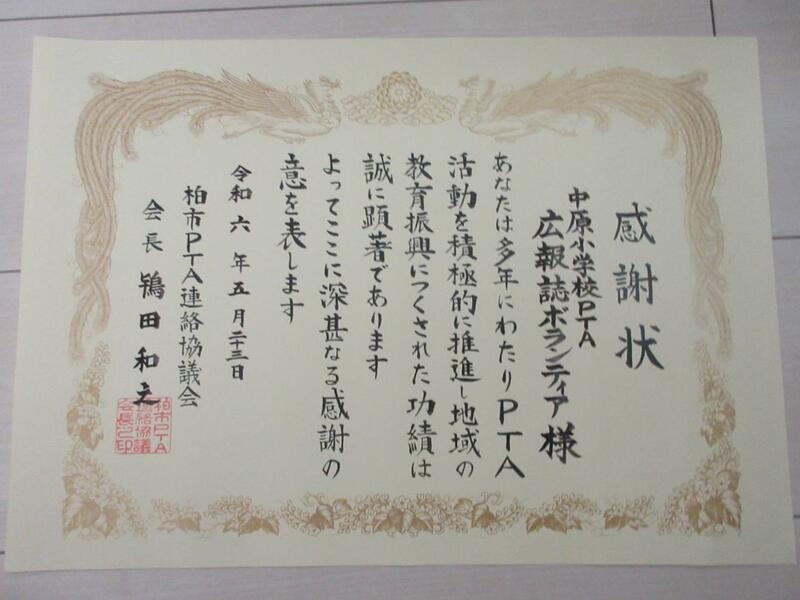 感謝状
中原小学校PTA
広報誌ボランティア様
あなたは多年にわたりPTA
活動を積極的に推進し地域の
教育振興につくされた功績は
誠に顕著であります
よってここに深甚なる感謝の
意を表します
令和六年五月二十三日
柏市PTA連絡協議会
会長 鴇田和之
柏市PTA
連絡協議
会長之印